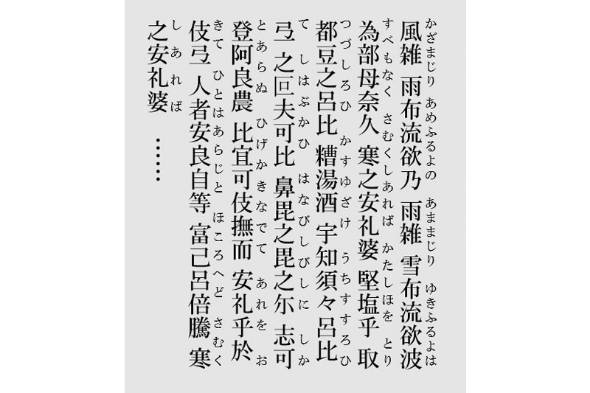 かざまじり あめふるよの あままじり ゆきふるよは
風雑 雨布流欲乃 雨雑 雪布流欲波
すべもなく さむくしあれば かたしほを とり
為部母奈久 寒之安礼婆 堅塩乎 取
つづしろひ かすゆざけ うちすすろひ
都豆之呂比 糟湯酒 宇知須々呂比
て しはぶかひ はなびしびしに しか
弖 之叵夫可比 鼻毘之毘之尓 志可
とあらぬ ひげかきなでて あれを お
登阿良農 比宜可伎撫而 安礼乎於
きて ひとはあらじと ほころへど さむく
伎弖 人者安良自等 富己呂倍騰 寒
しあれば
之安礼婆 ……